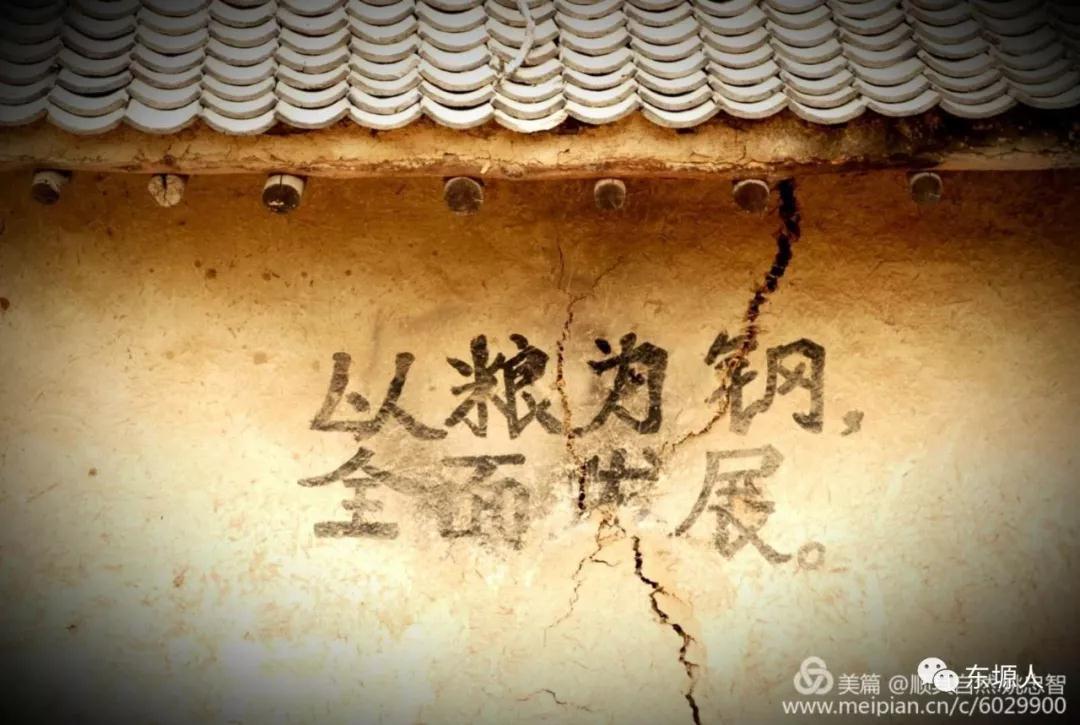 以粮为钢，
全面发展。
美篇 @顺其自然姚忠智
东塬人
www.meipian.cn/c/6029900